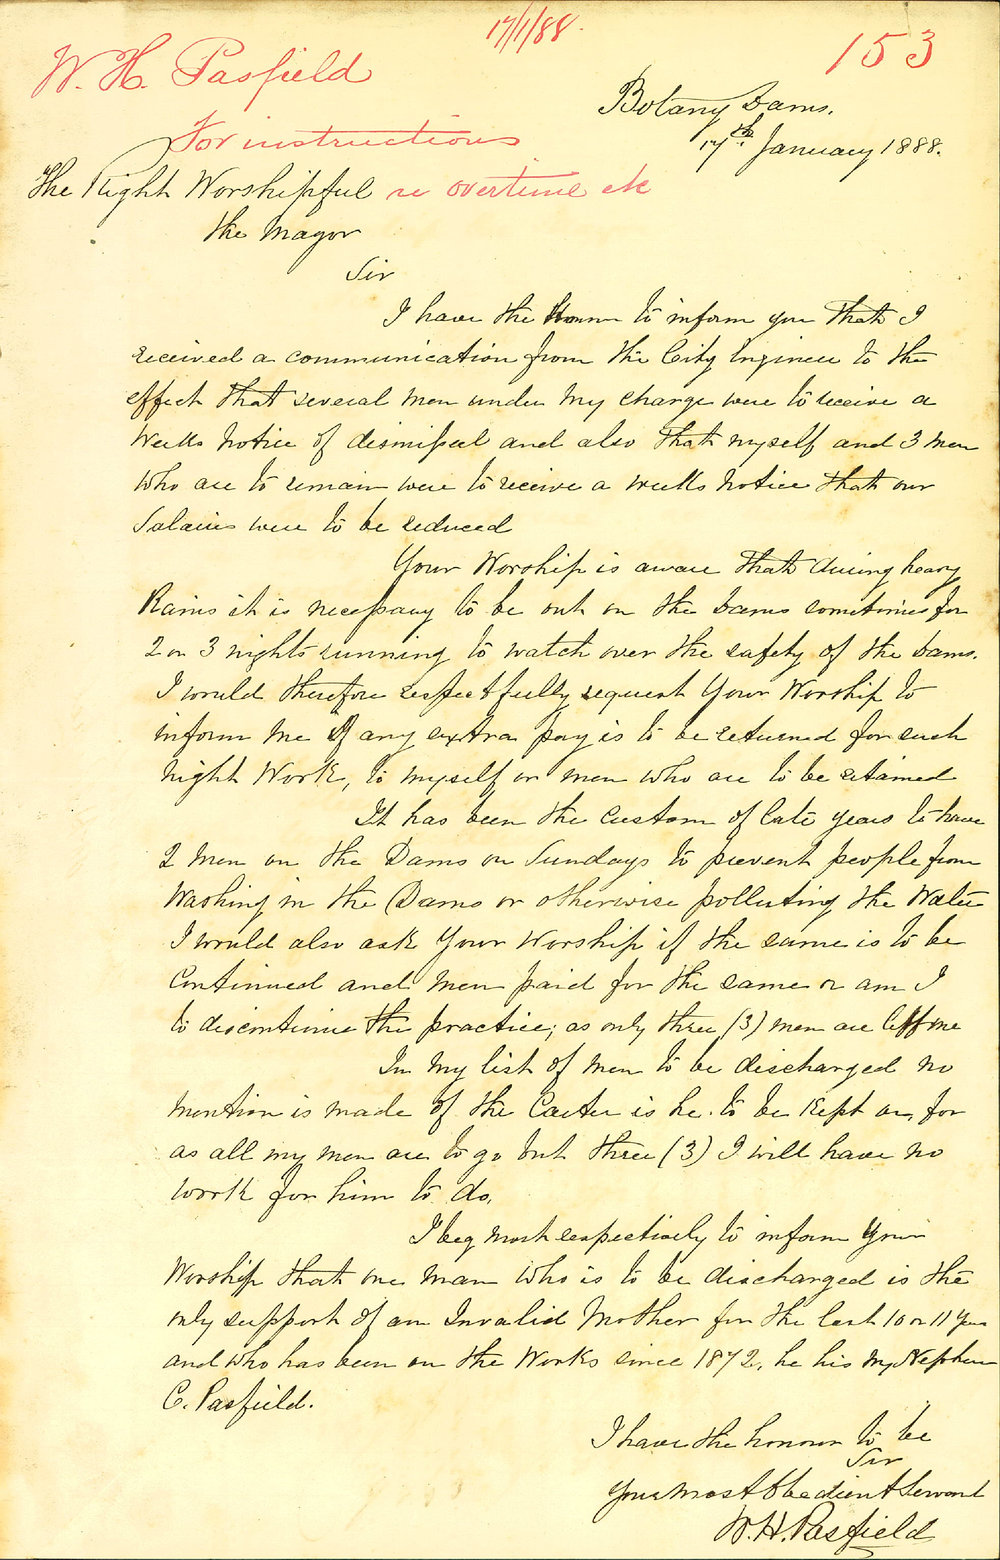 17/1/88.
153
W. H. Pasfield
For instructions
re overtime etc
Botany Dams.
17th January 1888.
The Right Worshipful
the Mayor
Sir
I have the Honor to inform you that I
received a communication from the City Engineer to the
effect that several men under my charge were to receive a
weeks notice of dismissal and also that myself and 3 men
who are to remain were to receive a weeks notice that our
Salaries were to be reduced
Your Worship is aware that during heavy
Rains it is necessary to be out on the Dams sometimes for
2 or 3 nights running to watch over the safety of the Dams.
I would therefore respectfully request Your Worship to
inform me if any extra pay is to be returned for such
night Work, to myself or men who are to be retained
It has been the custom of late years to have
2 men on the Dams on Sundays to prevent people from
Washing in the Dams or otherwise polluting the Water
I would also ask Your Worship if the same is to be
Continued and men paid for the same or am I
to discontinue the practice; as only three (3) men are left me
In my list of men to be discharged no
mention is made of the Carter is he to be Kept on, for
as all my men are to go but three (3) I will have no
work for him to do.
I beg most respectively to inform Your
Worship that one man who is to be discharged is the
only support of an Invalid Mother for the last 10 or 11 Years
and who has been on the Works since 1872, he his my Nephew
C. Pasfield.
I have the honour to be
Sir
Your most Obedient Servant
W. H. Pasfield